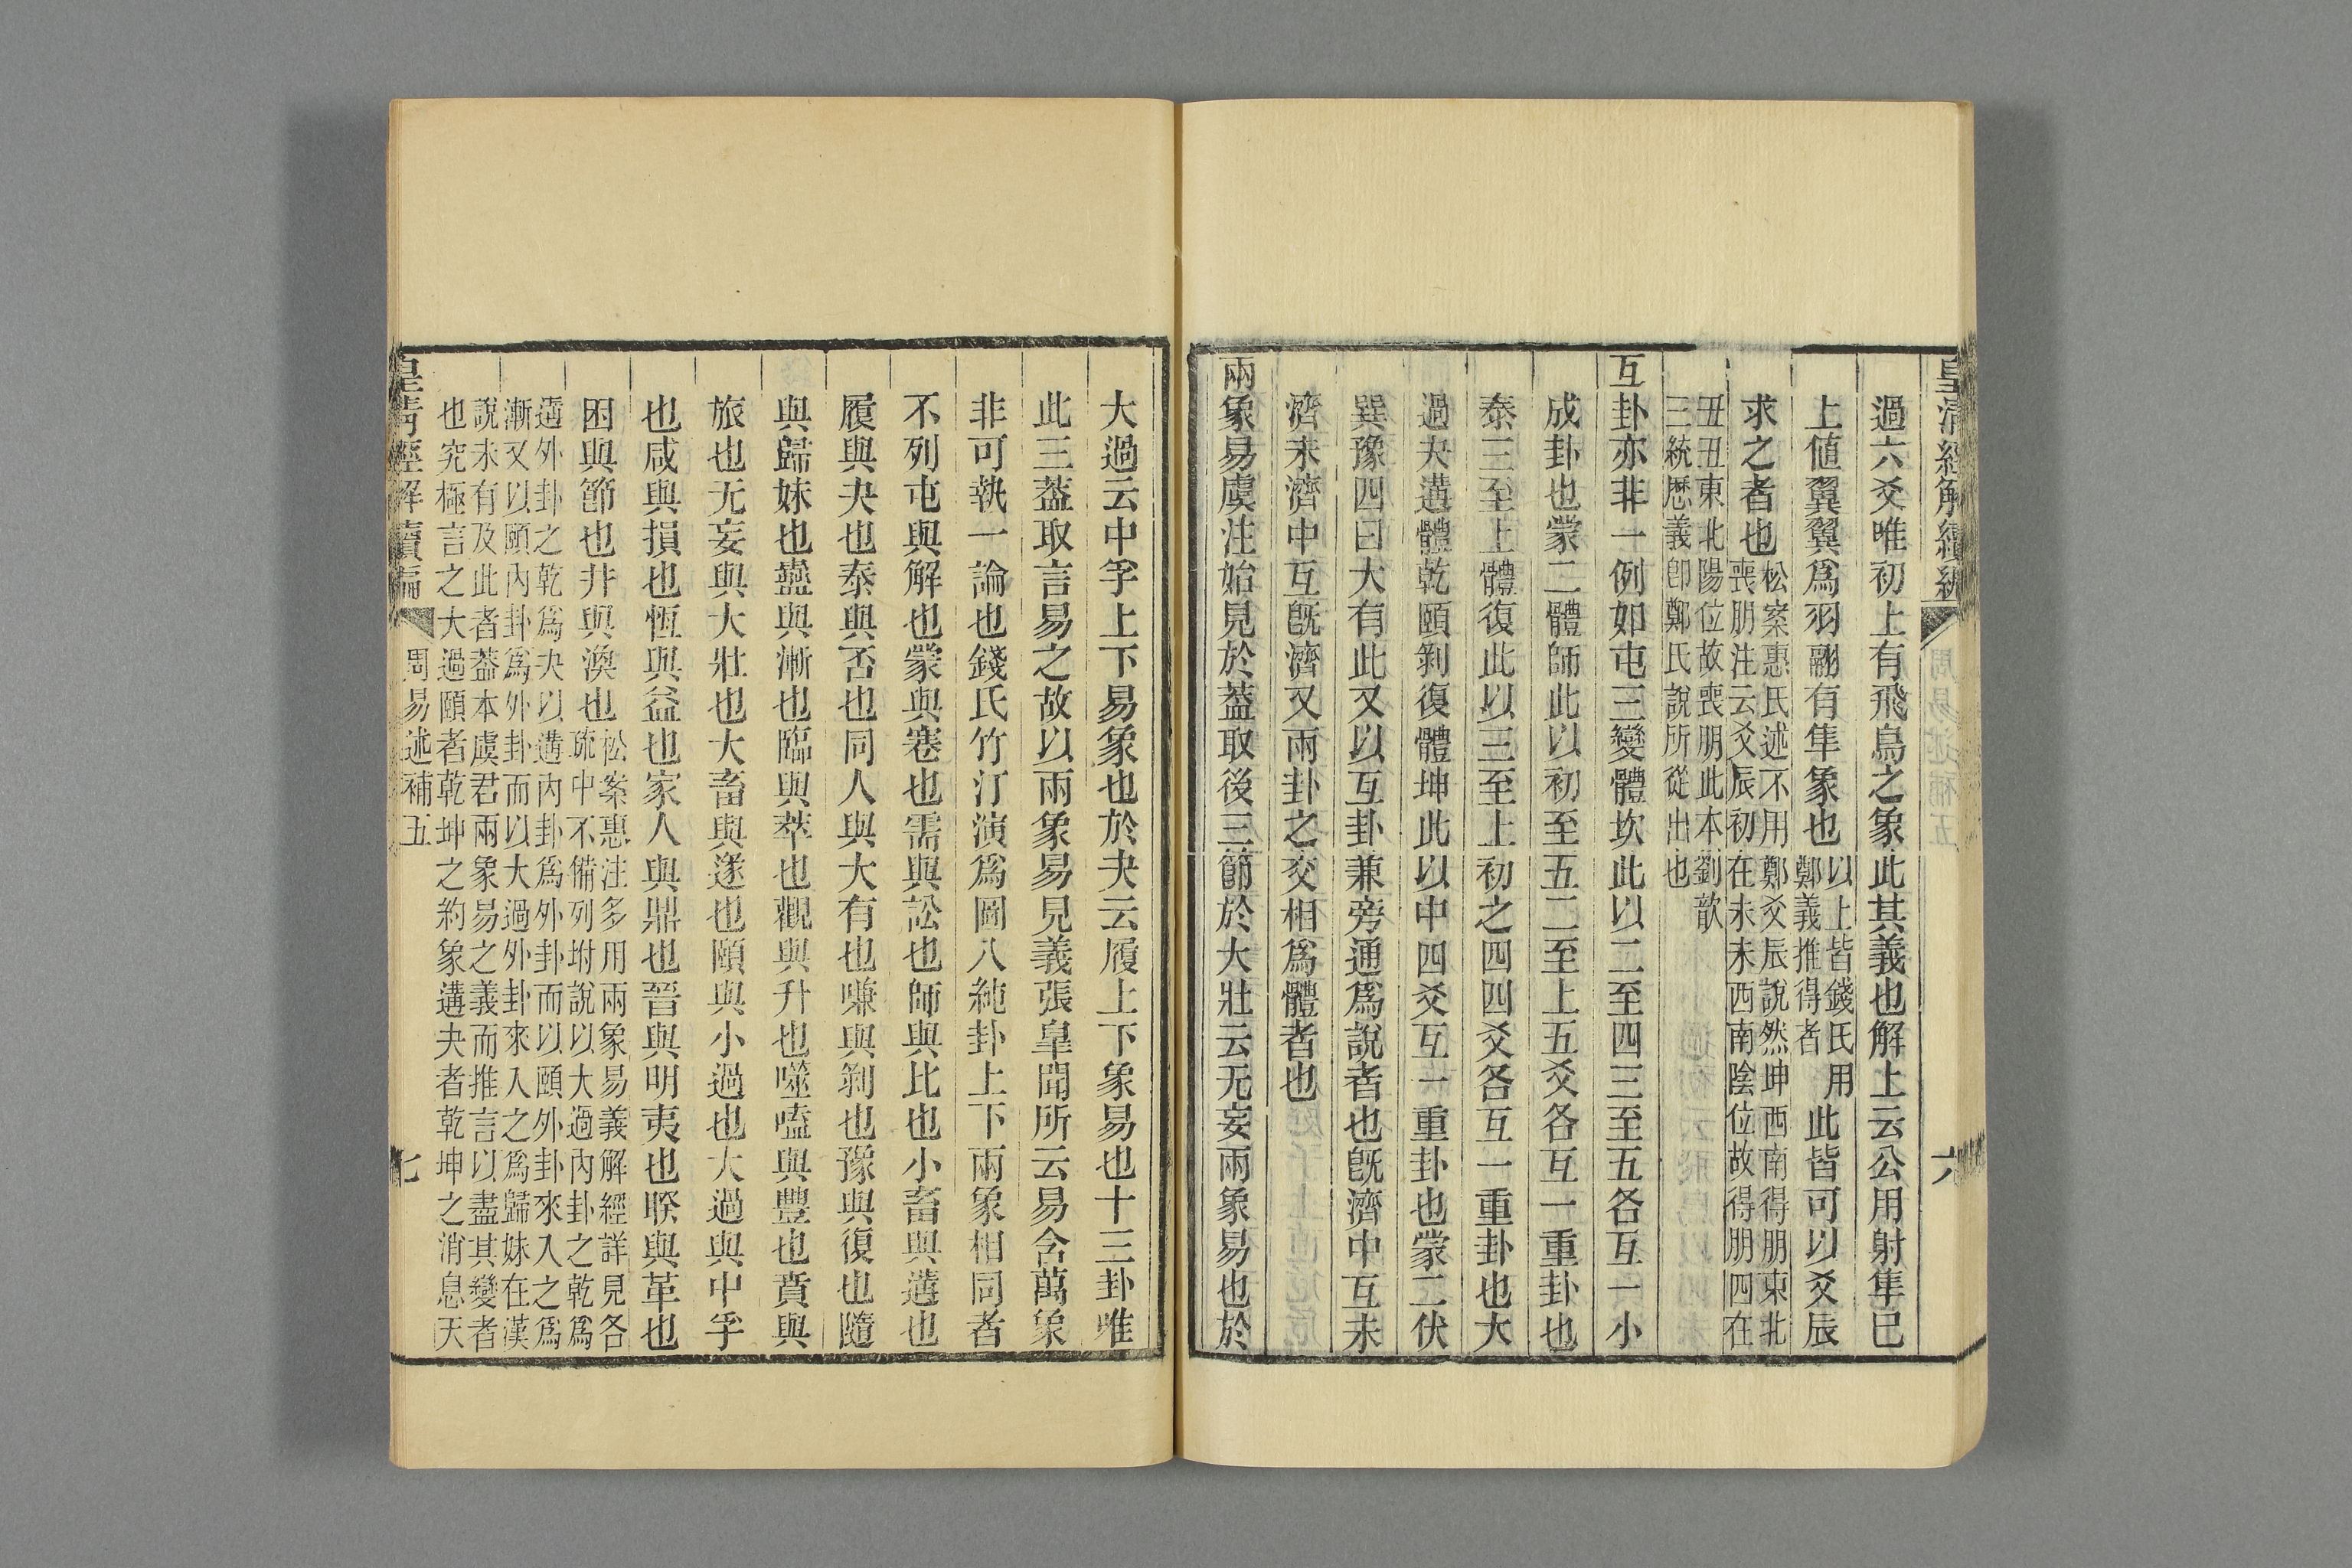 皇清經解續編
周易述補五
六
過六爻唯初上有飛鳥之象此其義也解上云公用射隼巳
上値翼翼爲羽翮有隼象也以上皆錢氏用
鄭義推得者此皆可以爻辰
求之者也松案惠氏述不用鄭爻辰說然坤西南得朋東北
喪朋注云爻辰初在未未西南陰位故得朋四在
丑丑東北陽位故喪朋此本劉歆
三統厯義卽鄭氏說所從出也
互卦亦非一例如屯三變體坎此以二至四三至五各互一小
成卦也蒙二體師此以初至五二至上五爻各互一重卦也
泰三至上體復此以三至上初之四四爻各互一重卦也大
過夬遘體乾頤剝復體坤此以中四爻互一重卦也蒙二伏
巽豫四曰大有此又以互卦兼旁通爲說者也旣濟中互未
濟未濟中互旣濟又兩卦之交相爲體者也
兩象易虞注始見於葢取後三節於大壯云无妄兩象易也於
大過云中孚上下易象也於夬云履上下象易也十三卦唯
此三葢取言易之故以兩象易見義張皐聞所云易含萬象
非可執一論也錢氏竹汀演爲圖八純卦上下兩象相同者
不列屯與解也蒙與蹇也需與訟也師與比也小畜與遘也
履與夬也泰與否也同人與大有也嗛與剝也豫與復也隨
與歸妹也蠱與漸也臨與萃也觀與升也噬嗑與豐也賁與
旅也无妄與大壯也大畜與遂也頤與小過也大過與中孚
也咸與損也恆與益也家人與鼎也晉與明夷也睽與革也
困與節也井與渙也松案惠注多用兩象易義解經詳見各
疏中不備列坿說以大過內卦之乾爲
遘外卦之乾爲夬以遘內卦爲外卦而以頤外卦來入之爲
漸又以頤內卦爲外卦而以大過外卦來入之爲歸妹在漢
說未有及此者葢本虞君兩象易之義而推言以盡其變者
也究極言之大過頤者乾坤之約象遘夬者乾坤之消息天
皇清經解續編
周易述補五
七